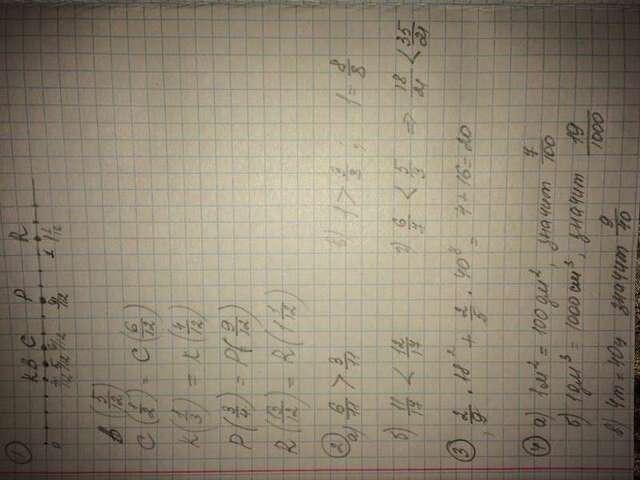 ①
K B C P R
0 4/12 5/12 6/12 9/12 1 1 1/12
B (5/12)
C (1/2) = C (6/12)
K (1/3) = K (4/12)
P (3/4) = P (9/12)
= R (1 1/12)
②
а) 6/11 > 3/11
б) 11/17 < 12/17
в) 1 > ; 1 = 8/8
г) 6/7 < 5/3 ⇒ 18/21 < 35/21
③
2/9 · 18² + 2/5 · 40⁸ = 4 + 16 = 20
④ а) 1м² = 100 дм², значит 7/100
б) 1дм³ = 1000 см³, значит 19/1000
в) 1т = 10ц значит 9/10